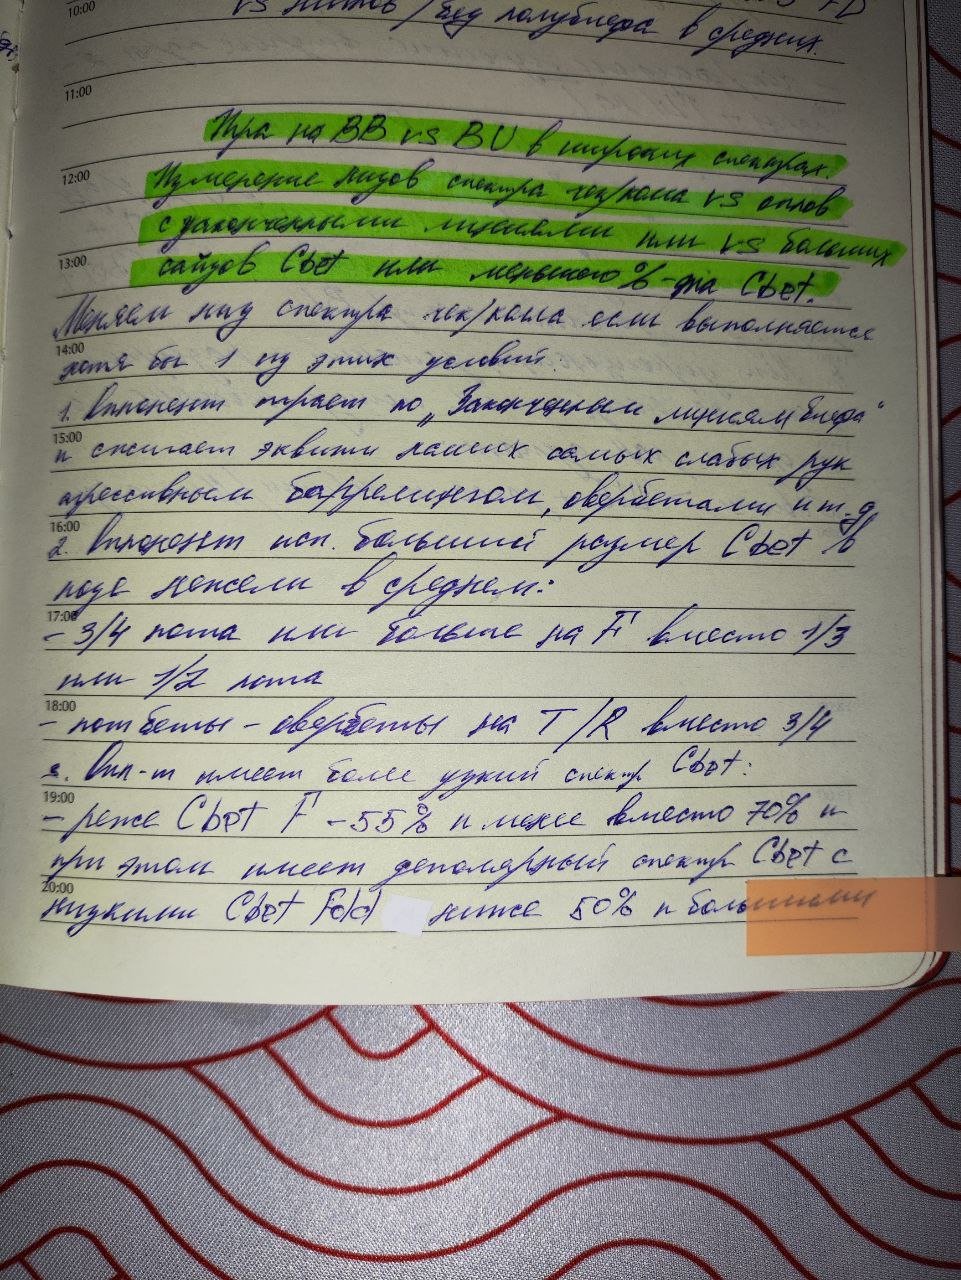 10:00
vs лимпов / без полублефа в средних.
11:00
Игра на BB vs BU в широких спектрах.
12:00
Измерение низов спектра чек/колла vs оппов
с законченными линиями или vs больших
13:00
сайзов Cbet или меньшего %-та Cbet.
Меняем низ спектра чек/колла если выполняется
14:00
хотя бы 1 из этих условий.
1. Оппонент играет по „Законченным линиям блефа"
15:00
и сжигает эквити наших самых слабых рук
агрессивным баррелингом, овербетами и т.д
16:00
2. Оппонент исп. больший размер Cbet %
поде нежели в среднем:
17:00
- 3/4 пота или больше на F вместо 1/3
или 1/2 пота
18:00
- потбеты - овербеты на T/R вместо 3/4
3. Опп-т имеет более узкий спектр Cbet:
19:00
- реже Cbet F - 55% и менее вместо 70% и
при этом имеет деполярный спектр Cbet с
20:00
низкими Cbet Fold ниже 50% и большими